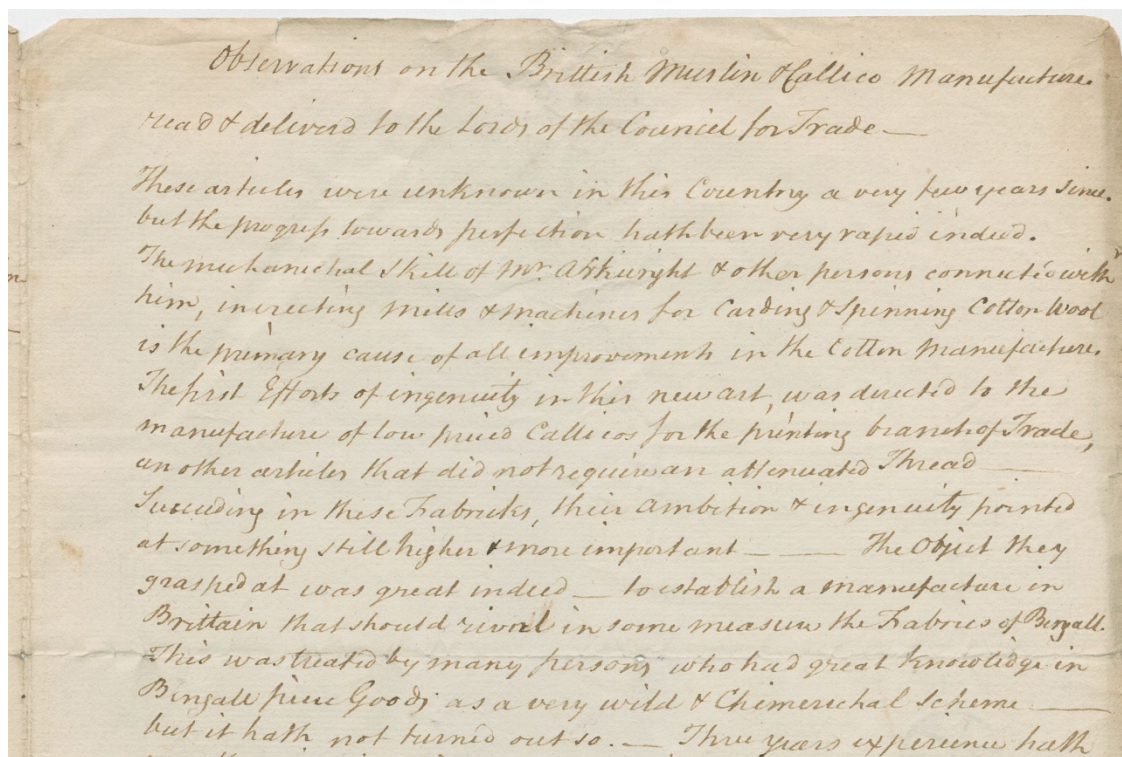 Observations on the Brittish Muslin & Callico Manufacture.
read & deliverd to the Lords of the Council for Trade —
These articles were unknown in this Country a very few years since.
but the progress towards perfection hath been very rapid indeed.
The mechanichal skill of Mr. Arkwright & other persons connected with
him, in erecting mills & machines for Carding & Spinning Cotton Wool
is the primary cause of all improvements in the Cotton Manufacture.
The first Efforts of ingenuity in this new art, was directed to the
manufacture of low priced Callicos for the printing branch of Trade,
an other articles that did not require an attenuated Thread —
Succeeding in these Fabricks, their ambition & ingenuity pointed
at something still higher & more important — — The Object they
grasped at was great indeed — to establish a manufacture in
Brittain that should rival in some measure the Fabrics of Bengall.
This was treated by many persons who had great knowledge in
Bengall piece Goods as a very wild & Chimerichal Scheme —
but it hath not turned out so. — Three years experience hath